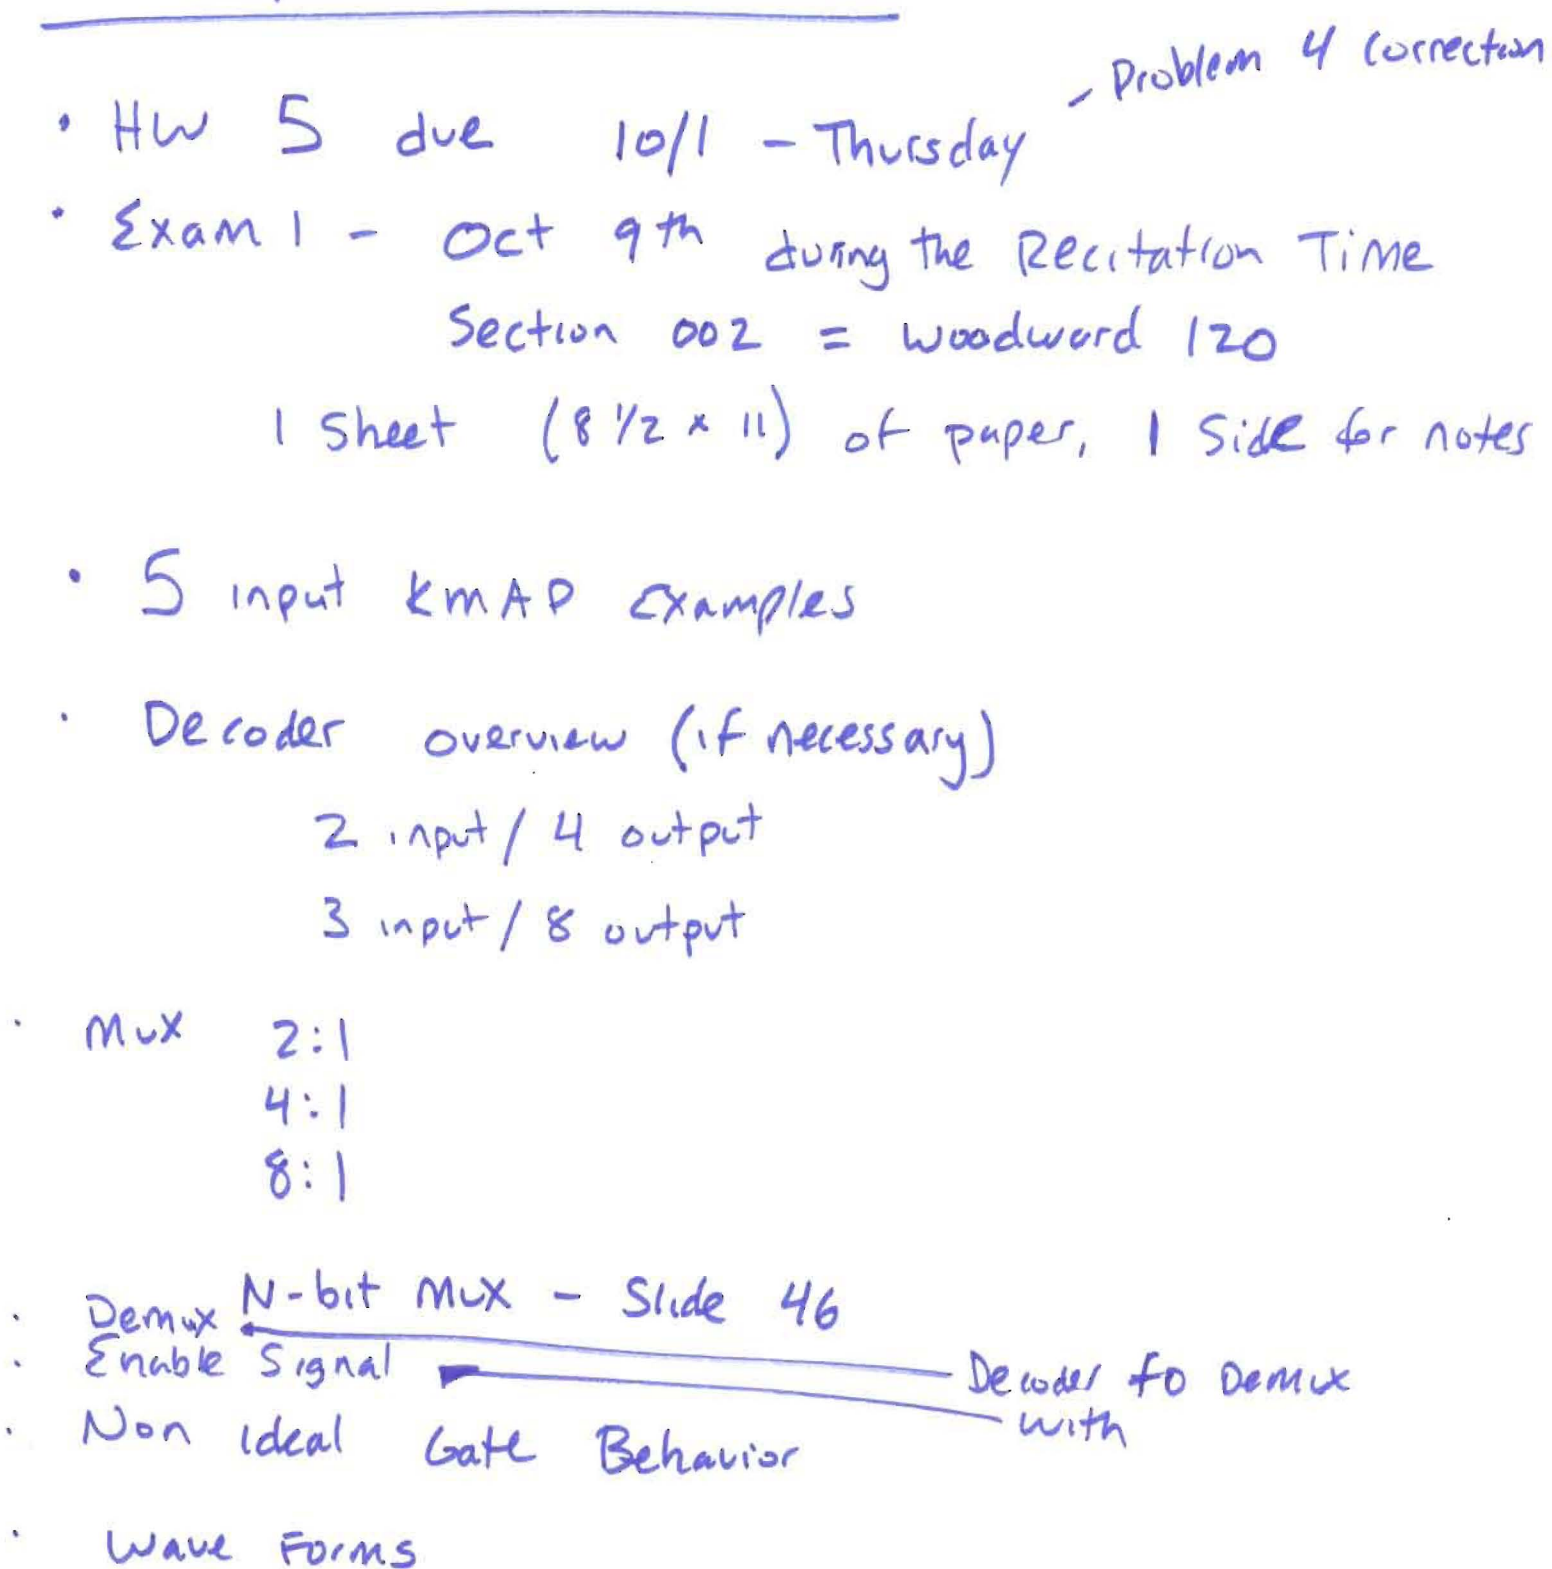 - Problem 4 correction
• HW 5 due 10/1 - Thursday
• Exam 1 - Oct 9th during the Recitation Time
Section 002 = Woodward 120
1 Sheet (8 1/2 x 11) of paper, 1 Side for notes
• 5 input KMAP Examples
• Decoder overview (if necessary)
2 input / 4 output
3 input / 8 output
• Mux 2:1
4:1
8:1
N-bit Mux - Slide 46
• Demux
• Enable Signal
Decoder to Demux
with
• Non Ideal Gate Behavior
• Wave Forms